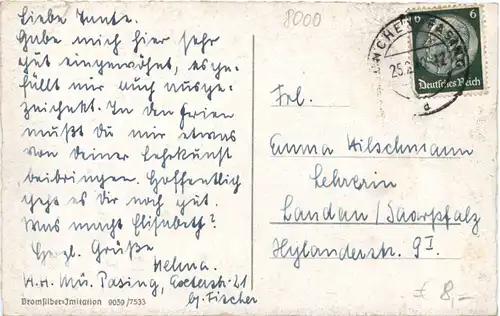 Liebe Tante.
Habe mich hier sehr
gut eingewöhnt, es ge-
fällt mir auch ausge-
zeichnet. In den Ferien
mußt Du mir etwas
von Deiner Lehrkunst
beibringen. Hoffentlich
geht es Dir noch gut.
Was macht Elisabeth?
Herzl. Grüße
Helma.
Mü. Pasing, Exterstr. 21
b/ Fischer
Bromsilber-Imitation 9039/7533
8000
6 6
Deutsches Reich
MÜNCHEN-PASING
Frl.
Emma Hilschmann
Lehrerin
Landau/Saarpfalz
Hylanderstr. 9 I.
€ 8,-